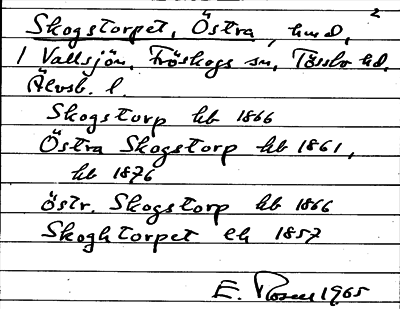 2
Skogstorpet, Östra, hmd,
1 Vallsjön, Fröskogs sn, Tössbo hd,
Älvsb. l.
Skogstorp hb 1866
Östra Skogstorp hb 1861,
hb 1876
östr. Skogstorp hb 1866
Skoghtorpet ek 1857
E. Rosell 1965